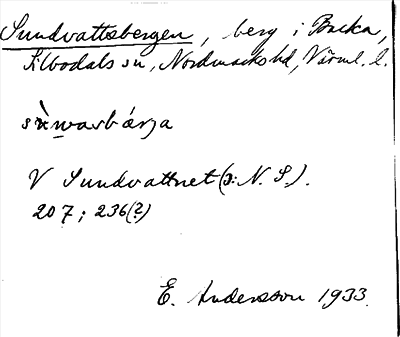 Sundvattsbergen, berg i Backa,
Silbodals sn, Nordmarks hd, Värml. l.
sùnwasbárja
V Sundvattnet (ɔ: N. S.).
207; 236(?)
E. Andersson 1933.